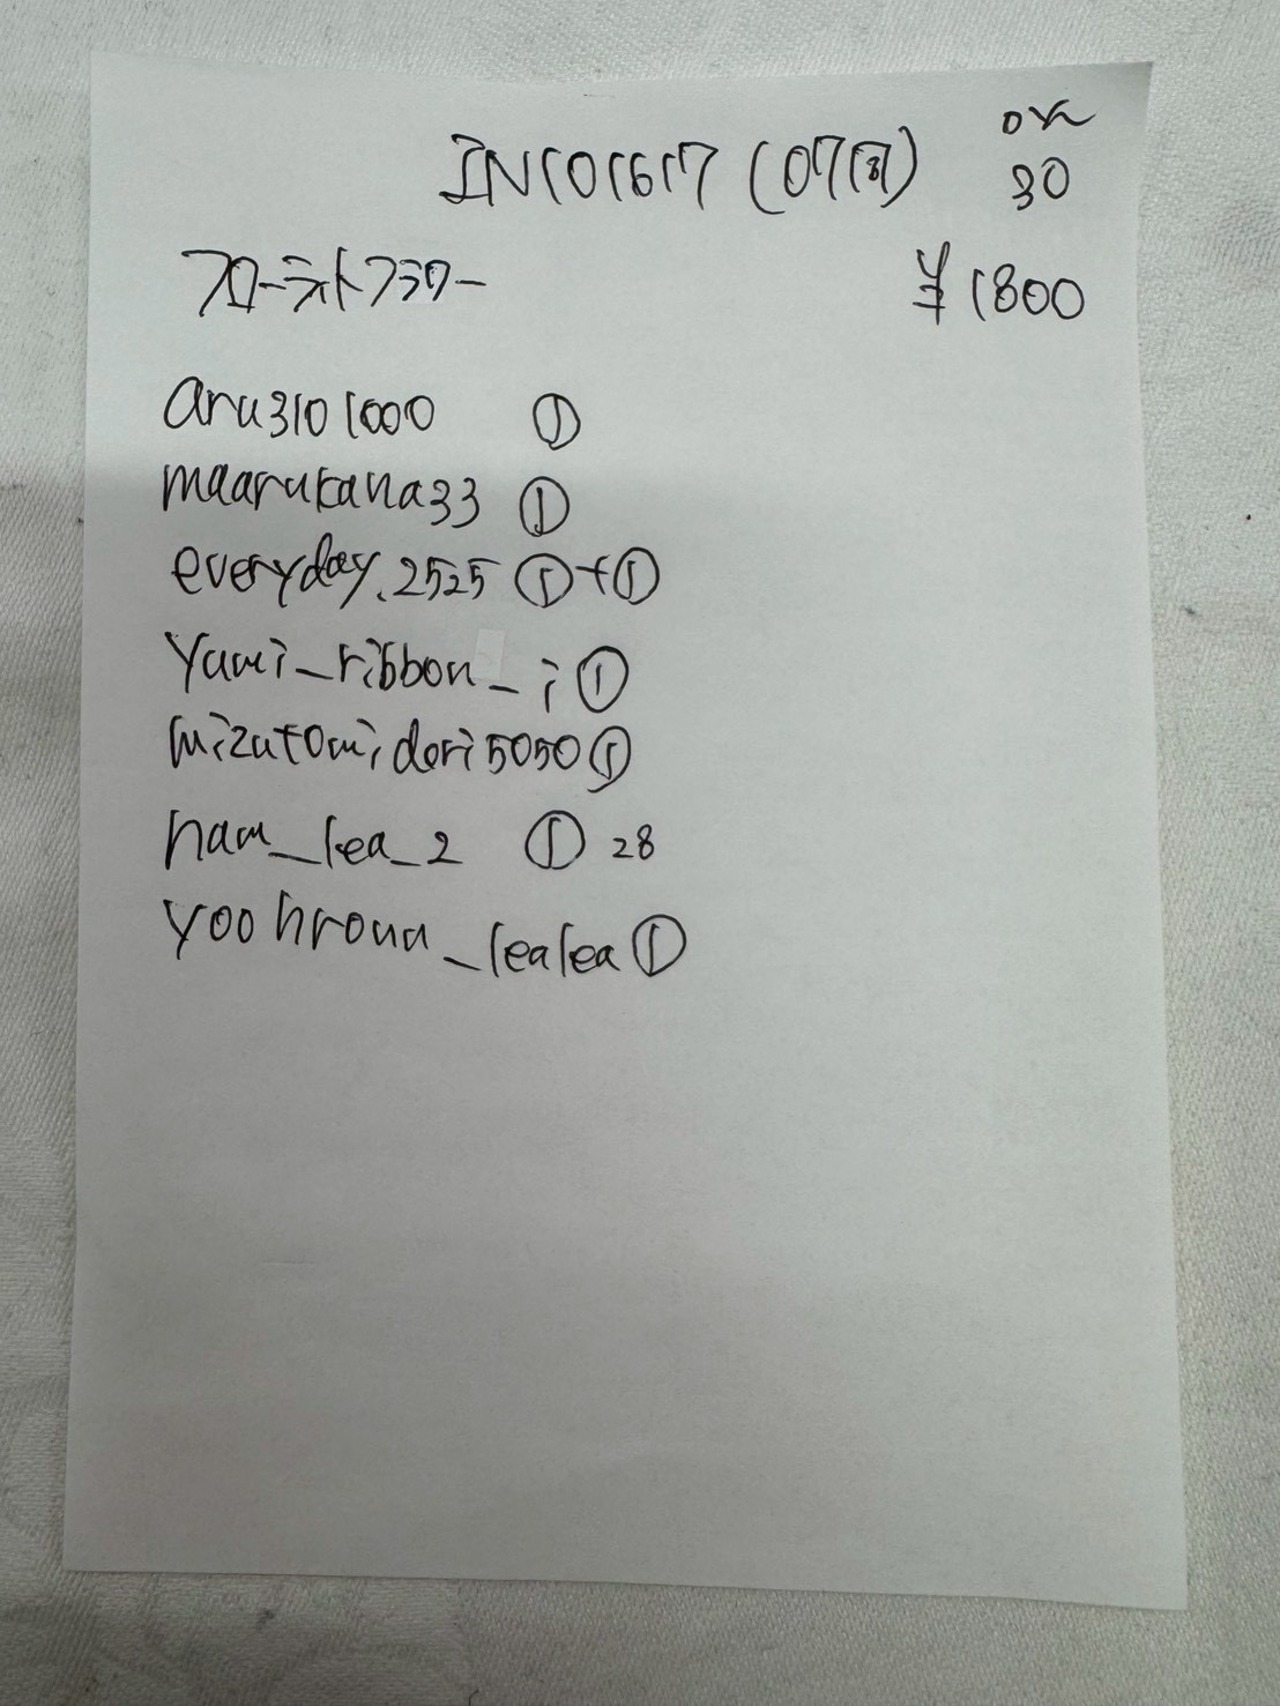 OK
IN101617 (0717) 30
フローライトフラワー ¥1800
aru3101000 ①
maarukana33 ①
everyday.2525 ①+①
yumi_ribbon_i ①
mizutomidori5050 ①
nam_lea_2 ① 28
yoohroun_lealea ①